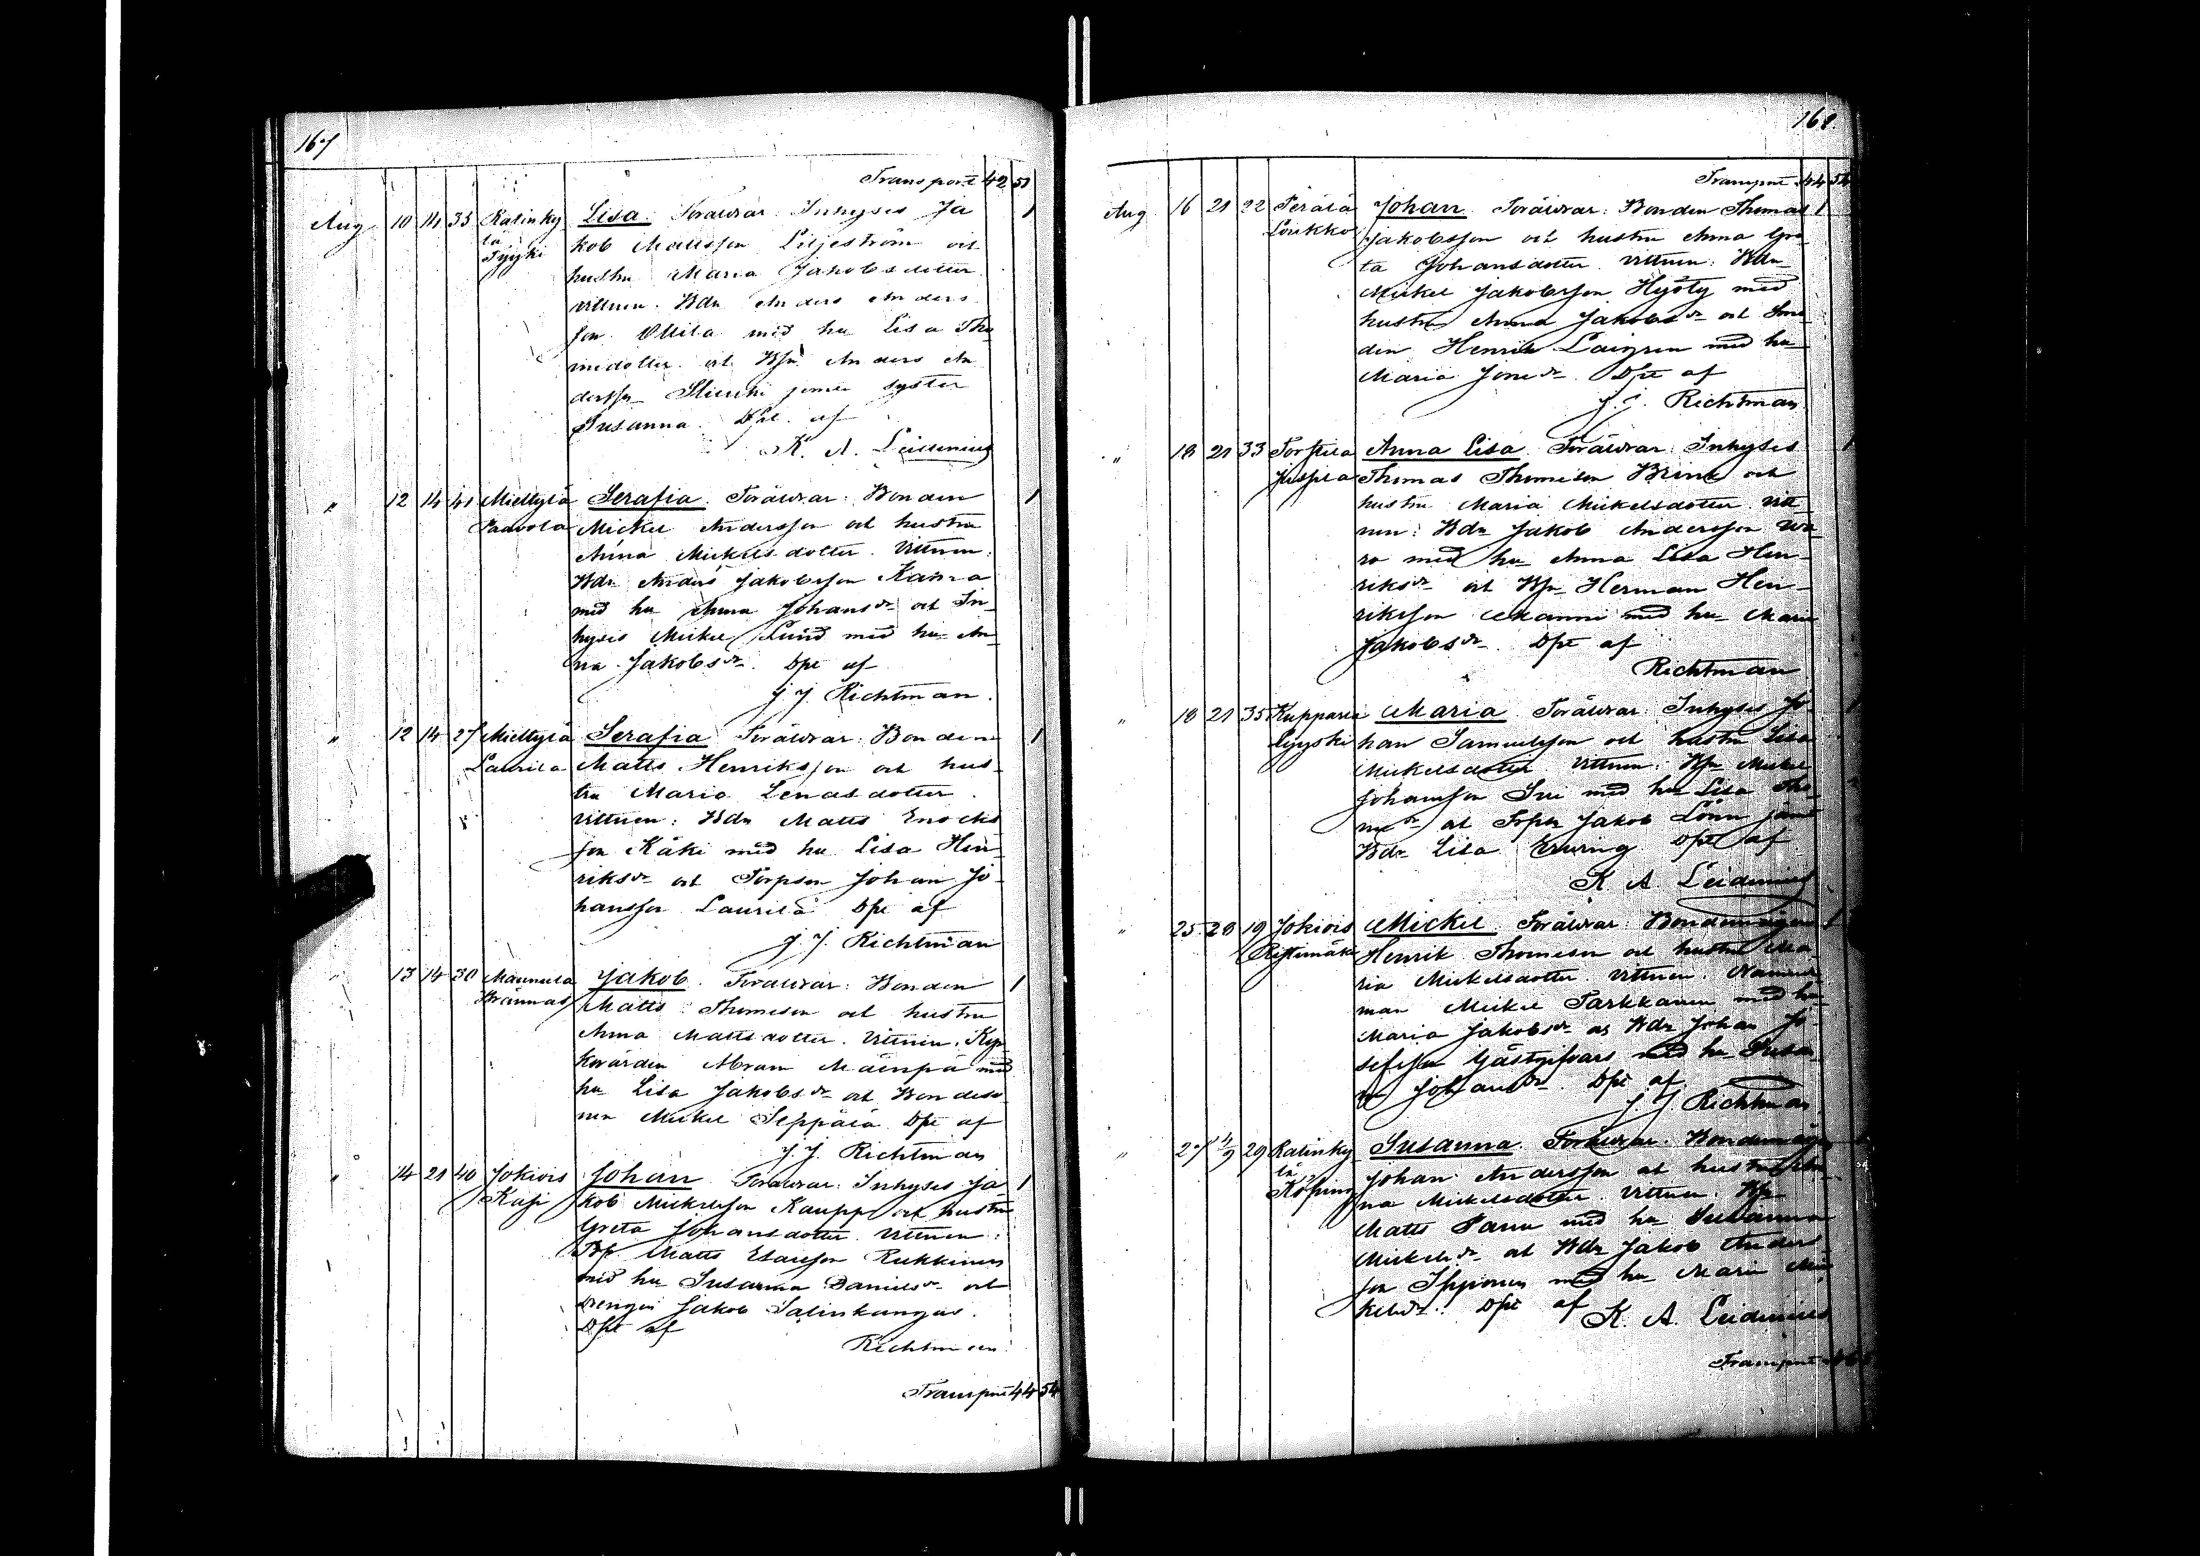 167
Transport 42 51
Aug. 10 14 35 Kalinky Lisa. Föräldrar: Inhyses Ja 1
lä kob Mattsson Liljeström och
Tyyki hustru Maria Jakobsdotter.
Vittnen: Bdn Anders Anders
son Ollila med hu Lisa Tho
medotter och Bsn Anders An
dersson Slunki jemte syster
Susanna. Dpt. af
K. A. Leidenius
" 12 14 41 Miettylä Serafia. Föräldrar: Bonden 1
Paavola Mickel Andersson och hustru
Anna Mickelsdotter. Vittnen:
Bdn Anders Jakobsson Kamra
med hu Anna Johansdr och In
hyses Mickel Lund med hu An
na Jakobsdr. Dpt af
J. J. Richtman.
" 12 14 27 Miettylä Serafia Föräldrar: Bonden 1
Laurila Matts Henriksson och hus
tru Maria Lenasdotter.
Vittnen: Bdn Matts Enocks
son Käki med hu Lisa Hen
riksdr och Torpson Johan Jo
hansson Laurila Dpt af
J. J. Richtman
" 13 14 30 Mannila Jakob. Föräldrar: Bonden 1
Brännas Matts Thomeson och hustru
Anna Mattsdotter. Vittnen: Kyr
kovärden Abram Mäenpä med
hu Lisa Jakobsdr och Bondeso
nen Mickel Seppälä Dpt af
J. J. Richtman
" 14 21 40 Jokivis Johan Föräldrar: Inhyses Ja 1
Kasi kob Mickelsson Kauppi och hustru
Greta Johansdotter. Vittnen:
Matts Esaisson Rukkinen
med hu Susanna Danielsdr och
Drengen Jakob Salinkangas.
Dpt af
Richtman.
Transport 44 54
168.
Transport 44 54
Aug. 16 21 22 Perälä Johan Föräldrar: Bonden Thomas 1
Löukko Jakobsson och hustru Anna Gre
ta Johansdotter. Vittnen: Bdn
Mickel Jakobsson Hyöty med
hustru Anna Jakobsdr och Sme
den Henrik Laigren med hu
Maria Jonedr. Dpt af
J. J. Richtman
" 18 21 33 Torftila Anna Lisa Föräldrar: Inhyses 1
Juspila Thomas Thomeson Brink och
hustru Maria Mickelsdotter. Vitt
nen: Bdn Jakob Andersson
med hu Anna Lisa Hen
riksdr och Bsn Herman Hen
riksson Manni med hu Maria
Jakobsdr. Dpt af
Richtman
" 18 21 35 Kupparla Maria Föräldrar: Inhyses Jo 1
Lyyski han Samuelsson och hustru Lisa
Mickelsdotter Vittnen: Bsn Mickel
Johansson Sui med hu Lisa Tho
medr och Jakob Lönn jämte
Bdr Lisa Dpt af
K. A. Leidenius
" 25 28 19 Jokivis Mickel Föräldrar: Bondemågen 1
Ristimäki Henrik Thomeson och hustru Ma
ria Mickelsdotter. Vittnen: Nämnde
man Mickel Tarkkanen med hu
Maria Jakobsdr och Bdn Johan Jo
sefsson Gästgifvars med hu Susan
na Johansdr. Dpt af
J. J. Richtman
" 27 4/9 29 Kalinky Susanna Föräldrar: Bondemågen
lä Johan Andersson och hustru An
Köping na Mickelsdotter. Vittnen: Bsn
Matts Panu med hu Susanna
Mickelsdr och Bdn Jakob Anders
son Ipponen med hu Maria Mic
kelsdr. Dpt af K. A. Leidenius
Transport